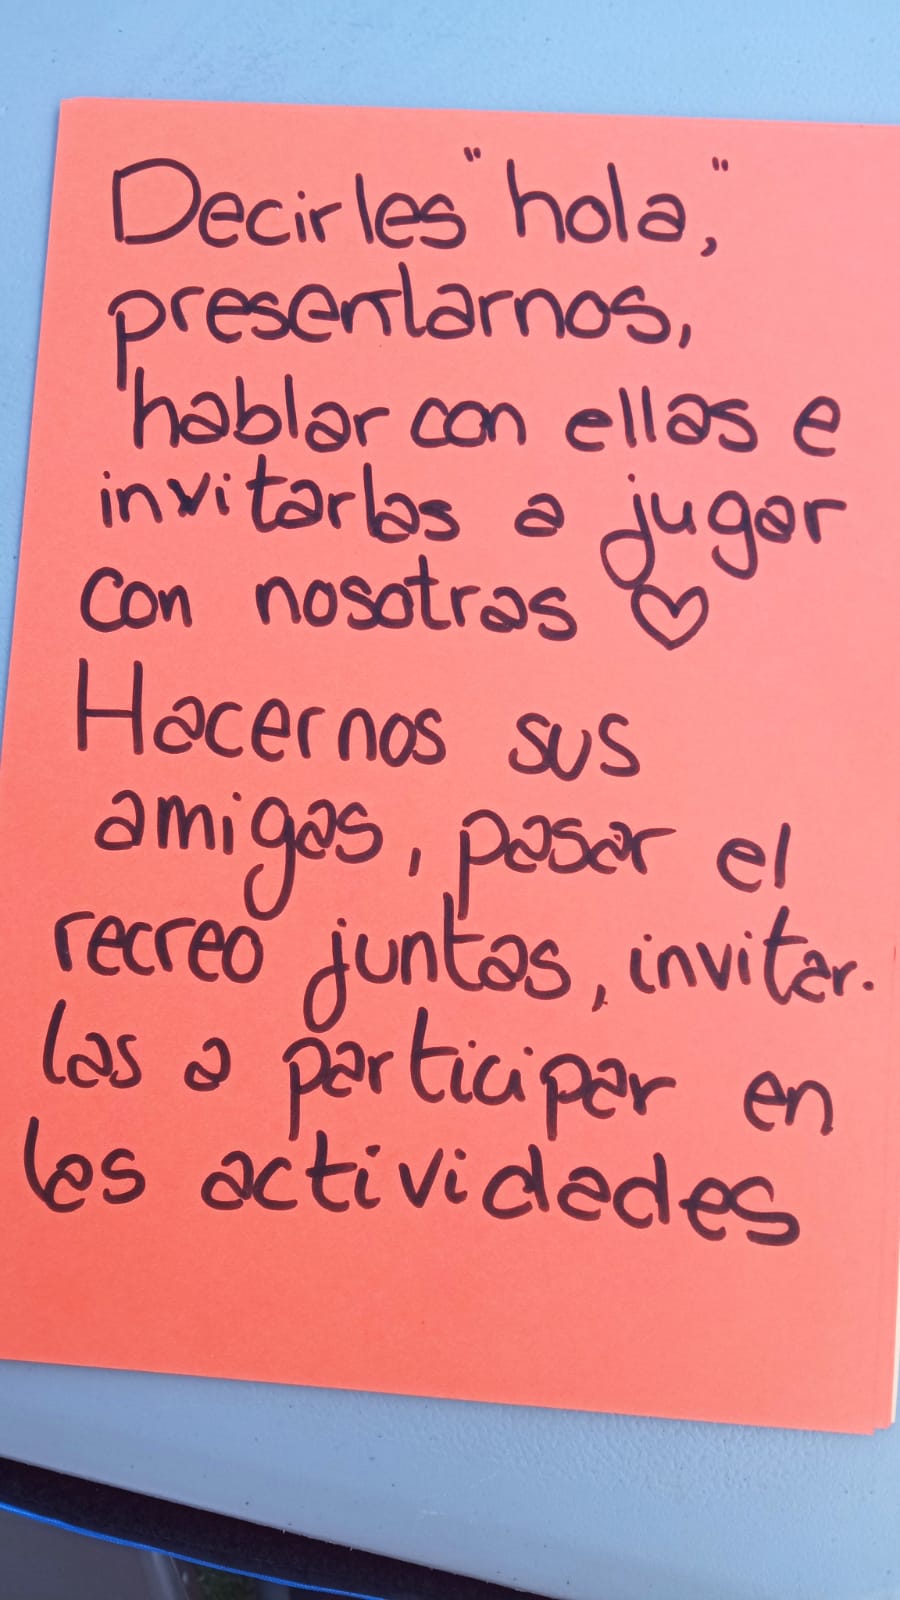 Decirles "hola,"
presentarnos,
hablar con ellas e
invitarlas a jugar
con nosotras ♡
Hacernos sus
amigas, pasar el
recreo juntas, invitar-
las a participar en
las actividades